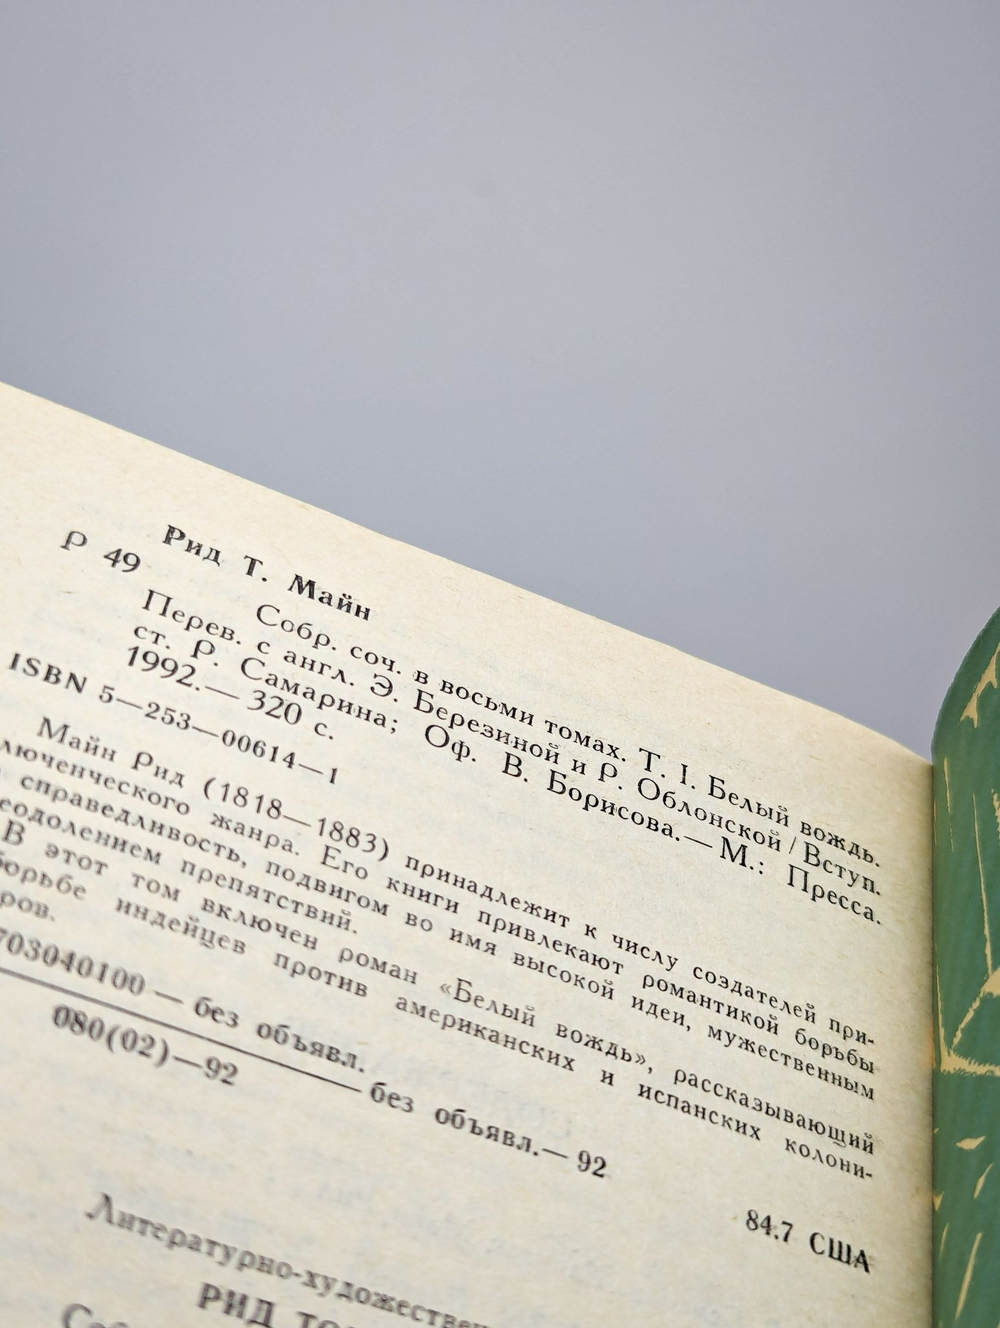 Рид Т. Майн
Р 49
Собр. соч. в восьми томах. Т. I. Белый вождь.
Перев. с англ. Э. Березиной и Р. Облонской / Вступ.
ст. Р. Самарина; Оф. В. Борисова.— М.: Пресса.
1992.— 320 с.
ISBN 5—253—00614—1
Майн Рид (1818—1883) принадлежит к числу создателей при-
люченческого жанра. Его книги привлекают романтикой борьбы
справедливость, подвигом во имя высокой идеи, мужественным
еодолением препятствий.
В этот том включен роман «Белый вождь», рассказывающий
борьбе индейцев против американских и испанских колони-
ров.
703040100 — без объявл.
без объявл.— 92
080(02)—92
84.7 США
Литературно-художествен
РИД ТО
Соб